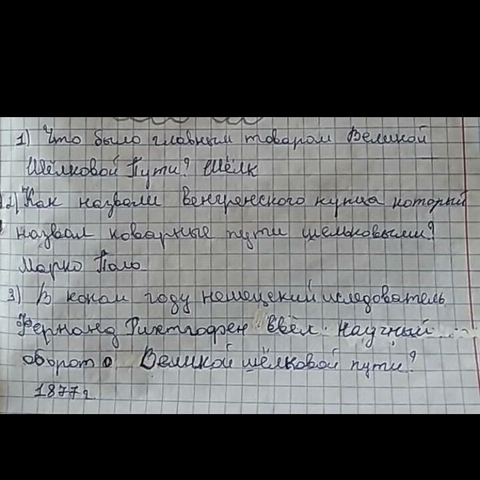 1) Что было главным товаром Великой
Шёлковой Пути? Шёлк
2) Как назвали венгренского купца который
назвал коварные пути шелковыми?
Марко Поло
3) В каком году немецский иследователь
Фернонд Рихтгофен ввёл научный
оборот о Великой шёлковой пути?
1877г